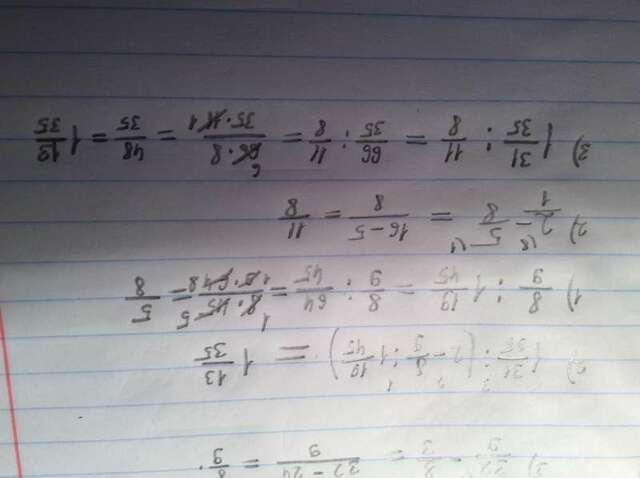 3) 32/9 - 8/3 = 32-24/9 = 8/9.
5) 1 31/35 : (2 - 8/9 : 1 19/45) = 1 13/35
1) 8/9 : 1 19/45 = 8/9 : 64/45 = 8·45/9·64 = 5/8
2) 2/1 - 5/8 = 16-5/8 = 11/8
3) 1 31/35 : 11/8 = 66/35 : 11/8 = 66·8/35·11 = 48/35 = 1 13/35